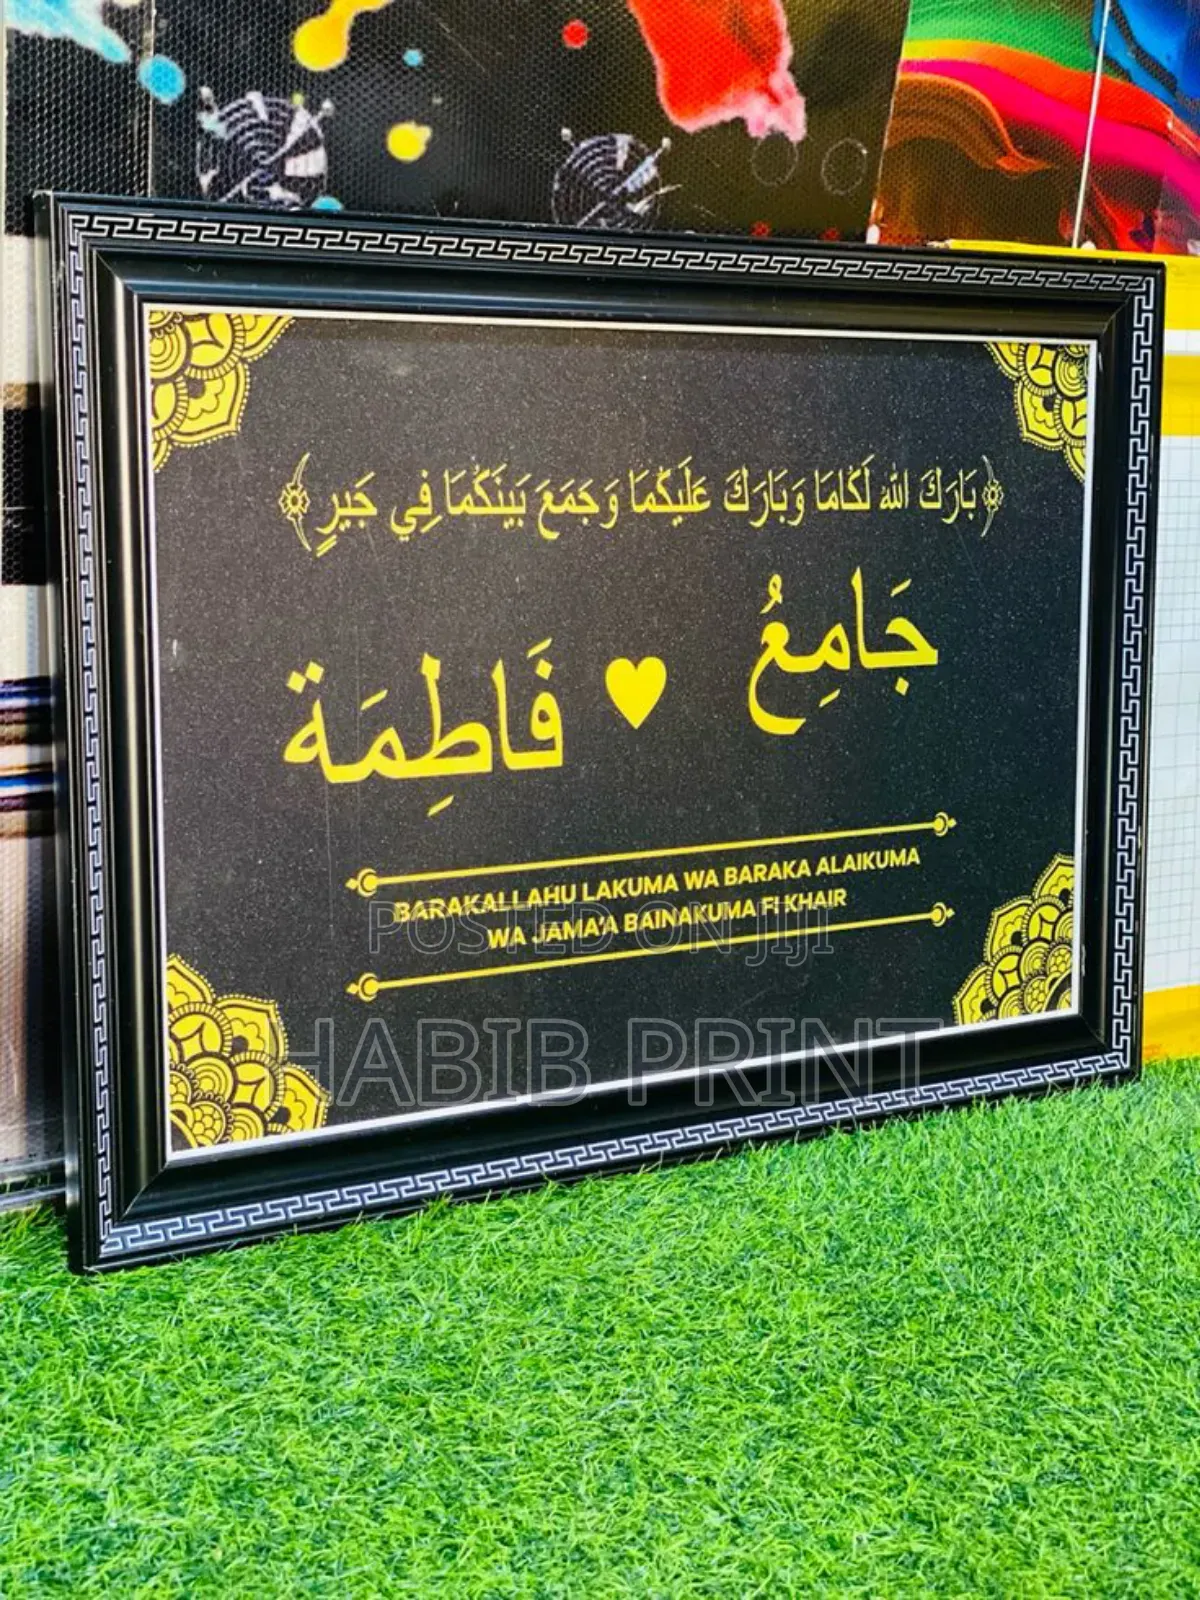 ﴿بَارَكَ الله لَكُامَا وَبَارَكَ عَلَيكُمَا وَجَمَعَ بَينَكُمَا فِي جَيرٍ﴾
جَامِعُ ♥ فَاطِمَة
BARAKALLAHU LAKUMA WA BARAKA ALAIKUMA
WA JAMA'A BAINAKUMA FI KHAIR
POSTED ON JIJI
HABIB PRINT